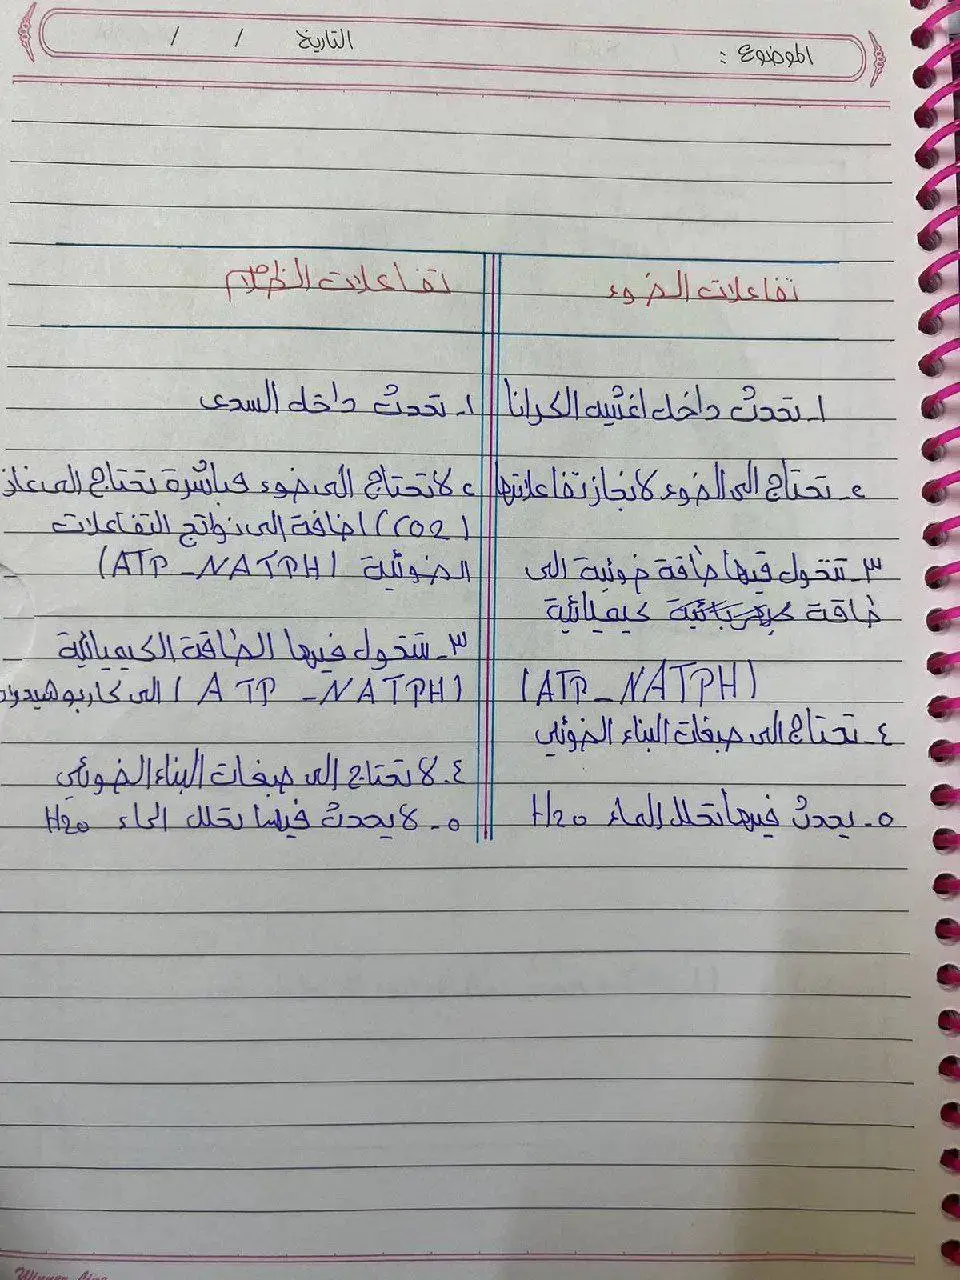 الموضوع :
التاريخ / /
تفاعلات الضوء
تفاعلات الظلام
١- تحدث داخل اغشيه الكرانا
٢- تحتاج الى الضوء لانجاز تفاعلاتها
٣- تتحول فيها طاقة ضوئية الى
طاقة كيميائية
(ATP - NATPH)
٤- تحتاج الى صبغات البناء الضوئي
٥- يحدث فيها تحلل الماء H2O
١- تحدث داخل السدى
٢- لا تحتاج الى ضوء مباشرة تحتاج الى غاز
(CO2) اضافة الى نواتج التفاعلات
الضوئية (ATP - NATPH)
٣- تتحول فيها الطاقة الكيميائية
(ATP - NATPH) الى
٤- لا تحتاج الى صبغات البناء الضوئي
٥- لا يحدث فيها تحلل الماء H2O